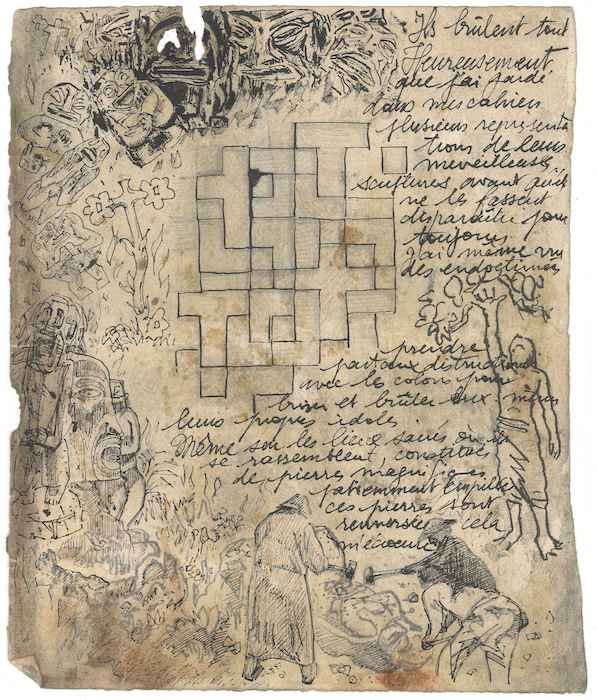 Ils brûlent tout
Heureusement
que j'ai gardé
dans mes cahiers
plusieurs représenta
tions de leurs
merveilleuses
scultures avant qu'ils
ne les fassent
disparaître pour
toujours
J'ai même vu
des
prendre
part aux destructions
avec les colons pour
briser et brûler eux mêmes
leurs propres idoles
Même sur les lieux sacrés où ils
se rassemblent, constitués
de pierres magnifiques
patiemment empilées
ces pierres sont
renversées cela
m'écoeure